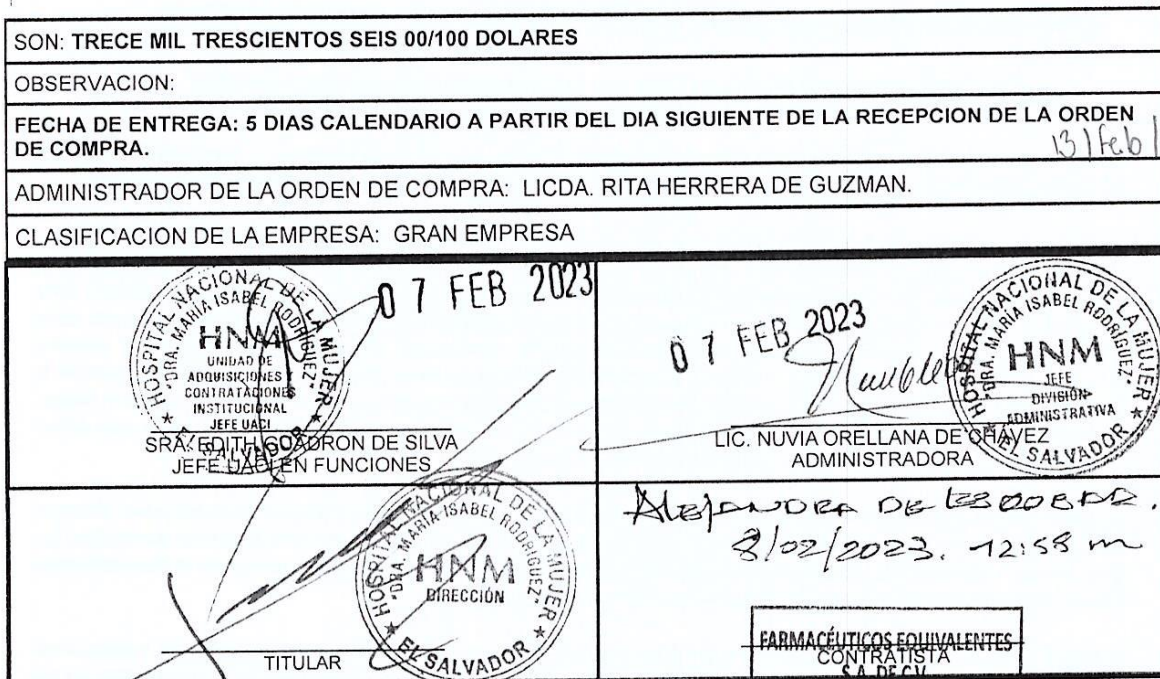 SON: TRECE MIL TRESCIENTOS SEIS 00/100 DOLARES
OBSERVACION:
FECHA DE ENTREGA: 5 DIAS CALENDARIO A PARTIR DEL DIA SIGUIENTE DE LA RECEPCION DE LA ORDEN
DE COMPRA.
13/Feb/
ADMINISTRADOR DE LA ORDEN DE COMPRA: LICDA. RITA HERRERA DE GUZMAN.
CLASIFICACION DE LA EMPRESA: GRAN EMPRESA
HOSPITAL NACIONAL DE LA MUJER
"DRA. MARÍA ISABEL RODRÍGUEZ"
HNM
UNIDAD DE
ADQUISICIONES Y
CONTRATACIONES
INSTITUCIONAL
JEFE UACI
EL SALVADOR
07 FEB 2023
SRA. EDITH GUADRON DE SILVA
JEFE UACI EN FUNCIONES
07 FEB 2023
HOSPITAL NACIONAL DE LA MUJER
"DRA. MARÍA ISABEL RODRÍGUEZ"
HNM
JEFE
DIVISIÓN
ADMINISTRATIVA
EL SALVADOR
LIC. NUVIA ORELLANA DE CHÁVEZ
ADMINISTRADORA
HOSPITAL NACIONAL DE LA MUJER
"DRA. MARÍA ISABEL RODRÍGUEZ"
HNM
DIRECCIÓN
EL SALVADOR
TITULAR
Alejandra de Escobar.
8/02/2023. 12:58 m
FARMACÉUTICOS EQUIVALENTES
CONTRATISTA
S.A. DE C.V.